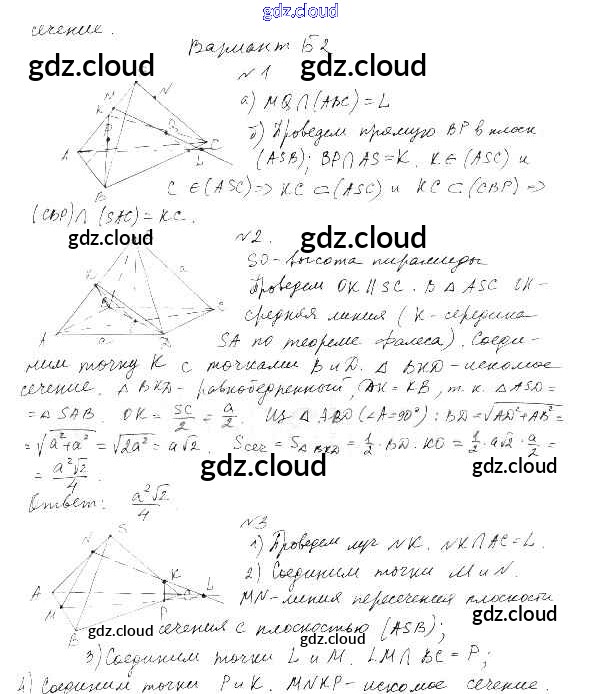 gdz.cloud
сечение.
Вариант Б2
gdz.cloud gdz.cloud
N1
а) MQ∩(ABC)=L
б) Проведем прямую BP в плоск
(ASB); BP∩AS=K. K∈(ASC) и
C∈(ASC)=>KC⊂(ASC) и KC⊂(CBP)=>
(CBP)∩(SAC)=KC.
gdz.cloud gdz.cloud
N2.
SO-высота пирамиды
Проведем OK||SC. В ΔASC OK-
средняя линия (K-середина
SA по теореме Фалеса). Соеди-
ним точку K с точками B и D. ΔBKD-искомое
сечение. ΔBKD-равнобедренный, DK=KB, т.к. ΔASD=
=ΔSAB. OK=SC/2=a/2. Из ΔABD(∠A=90°): BD=√AD²+AB²=
=√a²+a²=√2a²=a√2. Sсеч=SΔBKD=1/2·BD·KO=1/2·a√2·a/2=
=a²√2/4
gdz.cloud gdz.cloud
Ответ: a²√2/4
N3
1) Проведем луч NK. NK∩AC=L.
2) Соединим точки M и N.
MN-линия пересечения плоскости
gdz.cloud gdz.cloud
сечения с плоскостью (ASB);
3) Соединим точки L и M. LM∩BC=P;
4) Соединим точки P и K. MNKP-искомое сечение.
gdz.cloud gdz.cloud